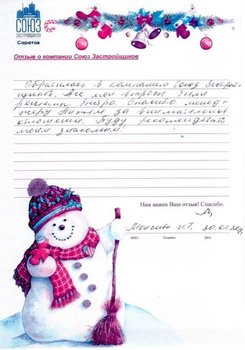 СОЮЗ
ЗАСТРОЙЩИКОВ
Саратов
Отзыв о компании Союз Застройщиков
Обратилась в компанию Союз Застрой-
щиков. Все мои вопросы были
решены быстро. Спасибо менед-
жеру за внимательное
отношение. Буду рекомендовать
моим знакомым!
Нам важен Ваш отзыв! Спасибо.
ФИО Подпись Дата